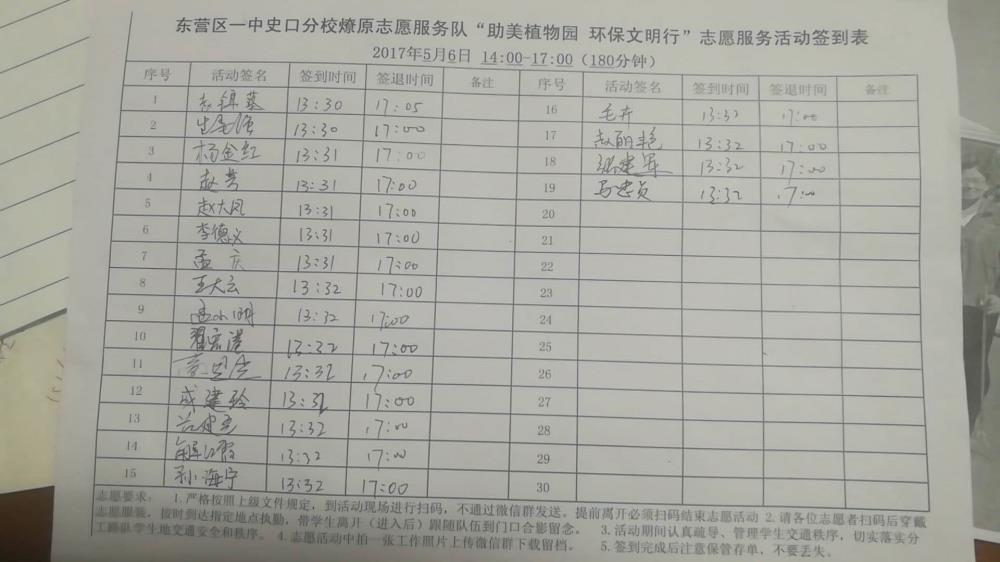 东营区一中史口分校燎原志愿服务队“助美植物园 环保文明行”志愿服务活动签到表
2017年5月6日 14:00-17:00（180分钟）
序号 活动签名 签到时间 签退时间 备注 序号 活动签名 签到时间 签退时间 备注
1 13:30 17:05 16 毛卉 13:32 17:00
2 13:30 17:00 17 赵丽艳 13:32 17:00
3 杨金红 13:31 17:00 18 张建军 13:32 17:00
4 赵芳 13:31 17:00 19 马忠贞 13:32 17:00
5 赵大凤 13:31 17:00 20
6 李德义 13:31 17:00 21
7 孟庆 13:31 17:00 22
8 王大云 13:32 17:00 23
9 孟小明 13:32 17:00 24
10 翟宗港 13:32 17:00 25
11 13:32 17:00 26
12 成建玲 13:32 17:00 27
13 13:32 17:00 28
14 13:32 17:00 29
15 孙海宁 13:32 17:00 30
志愿要求： 1.严格按照上级文件规定，到活动现场进行扫码，不通过微信群发送。提前离开必须扫码结束志愿活动 2.请各位志愿者扫码后穿戴
志愿服装，按时到达指定地点执勤，带学生离开（进入后）跟随队伍到门口合影留念。 3.活动期间认真疏导、管理学生交通秩序，切实落实分
工路队学生地交通安全和秩序。 4.志愿活动中拍一张工作照片上传微信群下载留档。 5.签到完成后注意保管存单，不要丢失。